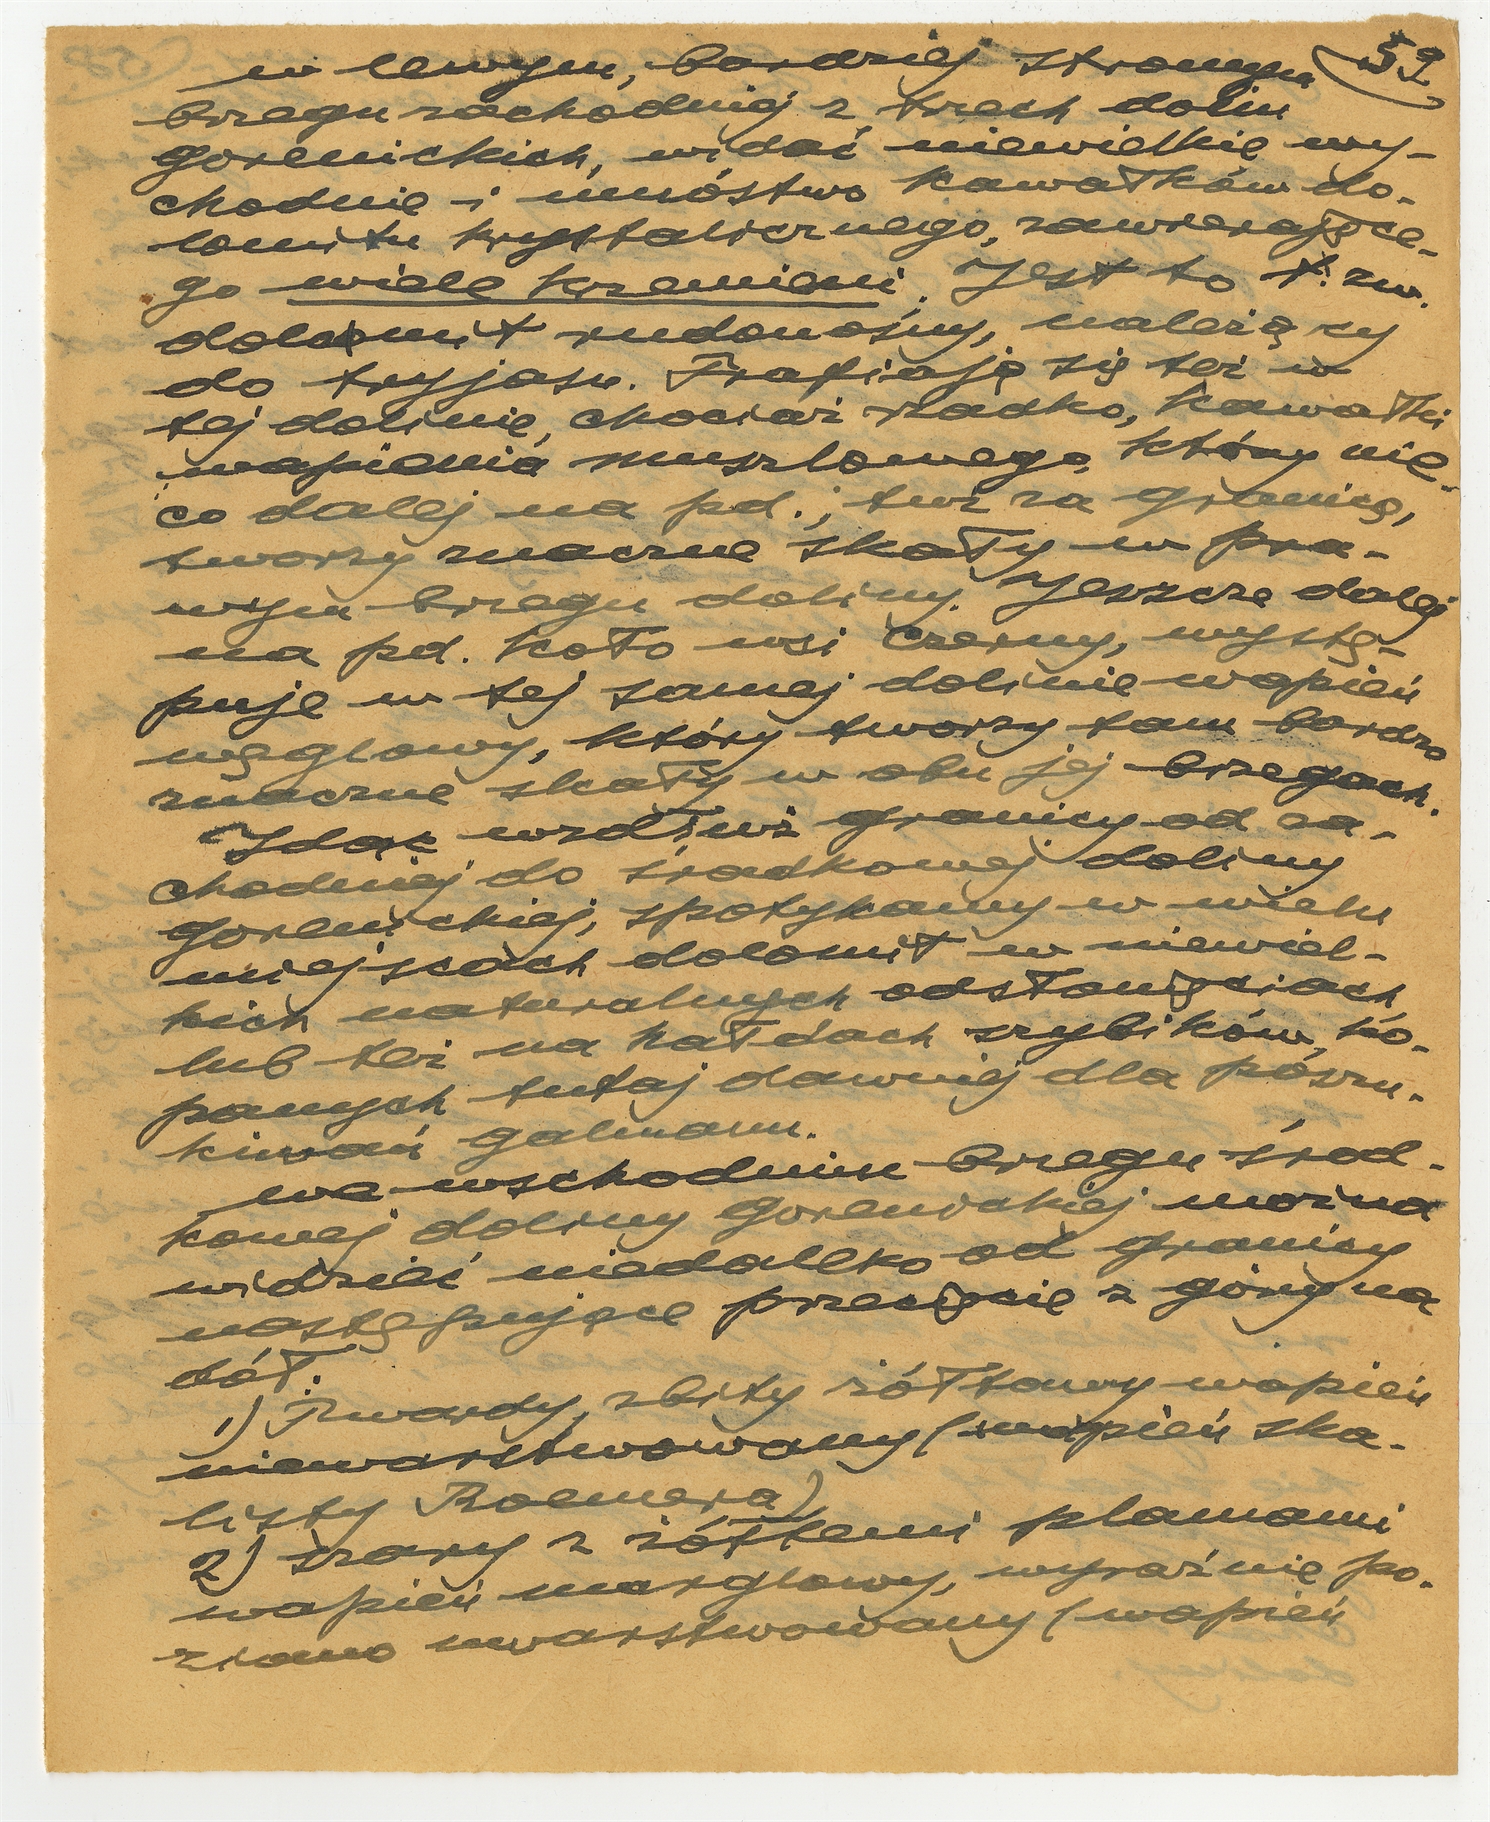 59
w lewym, bardziej stromym
brzegu zachodniej z trzech dolin
gorenickich, widać niewielkie wy-
chodnie i mnóstwo kawałków do-
lomitu krystalicznego, zawierające-
go wiele krzemieni. Jest to t. zw.
dolomit rudonośny, należący
do tryjasu. Trafiają się też w
tej dolinie, chociaż rzadko, kawałki
wapienia muszlowego, który nie-
co dalej na pd., tuż za granicą,
tworzy znaczne skały w pra-
wym brzegu doliny. Jeszcze dalej
na pd. koło wsi Czerny, wystę-
puje w tej samej dolinie wapień
węglowy, który tworzy tam bardzo
znaczne skały w obu jej brzegach.
Idąc wzdłuż granicy od za-
chodniej do środkowej doliny
gorenickiej, spotykamy w wielu
miejscach dolomit w niewiel-
kich naturalnych odsłonięciach
lub też na hałdach szybików, ko-
panych tutaj dawniej dla poszu-
kiwań galmanu.
We wschodnim brzegu środ-
kowej doliny gorenickiej można
widzieć niedaleko od granicy
następujące przecięcie z góry na
dół.
1) Twardy, zbity żółtawy wapień
niewarstwowany (wapień ska-
listy Roemera)
2) szary z żółtemi plamami
wapień marglowy, wyraźnie po-
ziomo uwarstwowany (wapień